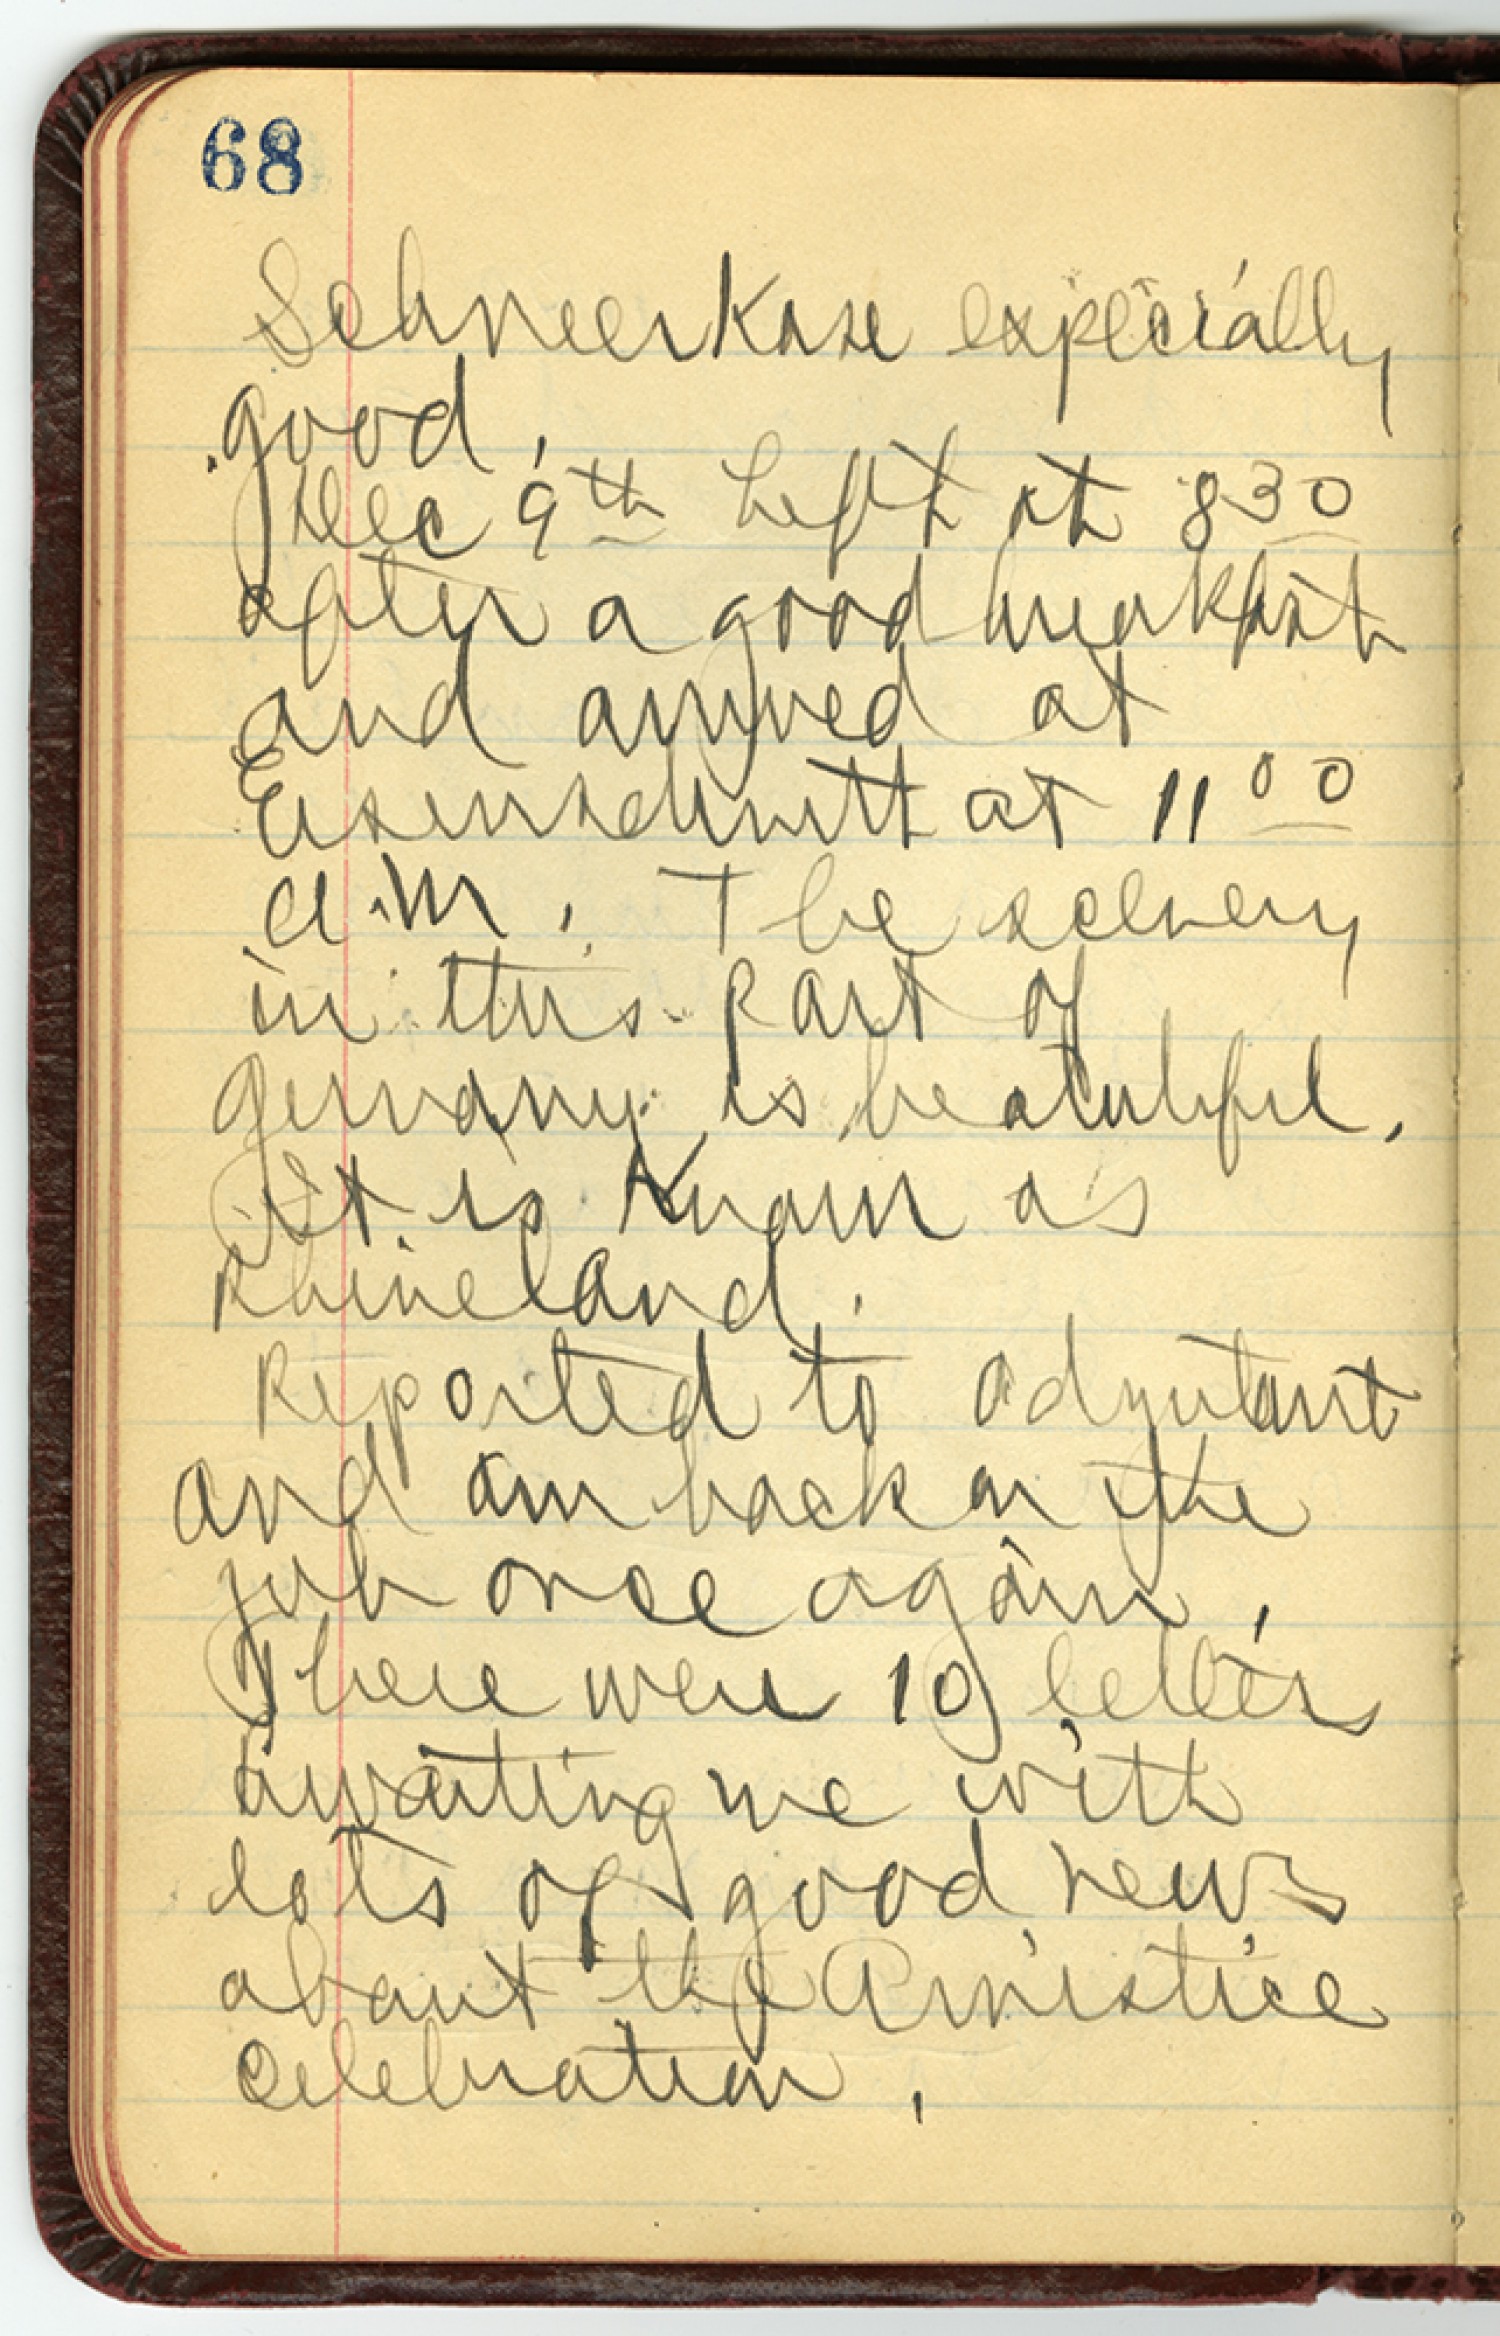 68
Schneerkase expecially
good.
Dec 9th Left at 830
after a good breakfast
and arrived at
Eisenschmitt at 1100
a.m. The scenery
in this part of
Germany is beatutiful.
It is Known as
Rhineland.
Reported to Adjutant
and am back on the
job once again.
There were 10 letters
awaiting me with
lots of good news
about the Armistice
Celebration.